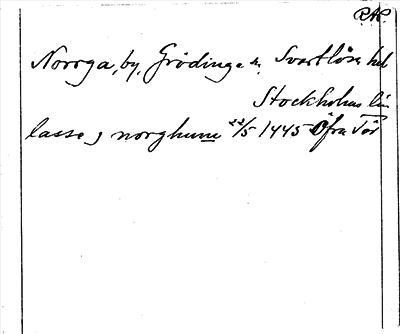 RAP.
Norrga, by, Grödinge sn. Svartlösa hd
Stockholms län
lasse j norghum 22/5 1445 Öfra Tör